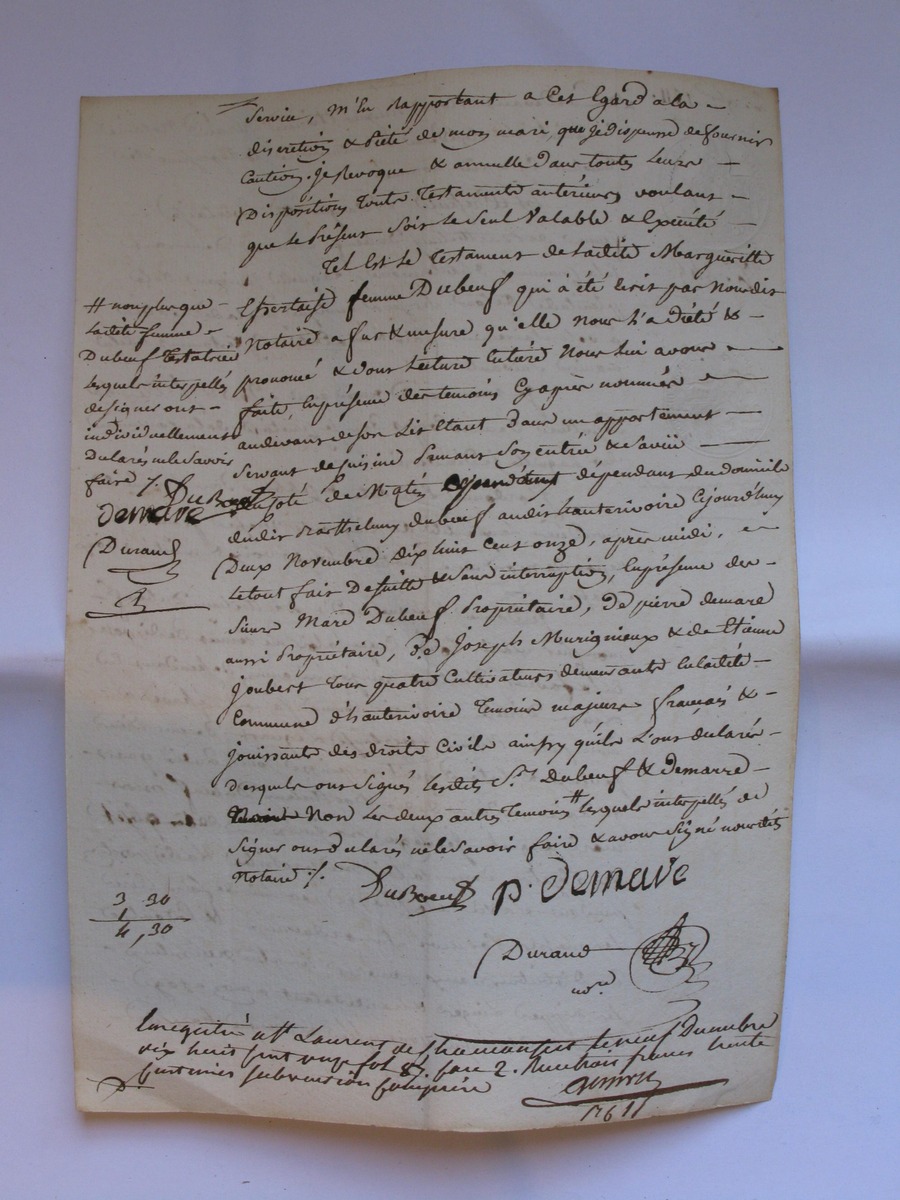 Service, m'en Rapportant a Cet Egard a la
discretion & piété de mon mari, que je dispense de fournir
Caution. Je Revoque & annulle dans toutes leurs
Dispositions Touts Testaments antérieurs voulant
que le Présent Soit le Seul Valable & Exécuté
Tel Est le Testament de Ladite Margueritte
femme Dubeuf qui à été Ecrit par Nous dit
Notaire a fur & mesure qu'elle Nous l'a dicté &
prononcé & dont Lecture Entiére Nous lui avons
faite, En présence des temoins Cy après nommés
au devant de son Lit Etant Dans un appartement
Servant de Cuisine Prenant Son entrée &
du Coté de dépendant du domicile
dudit Barthelemy dubœuf audit hauterivoire Cejourd'huy
Deux Novembre dix huit Cent onze, après midi,
le tout fait De suitte & Sans interruption, En présence des
Sieurs Marc Dubeuf Propriétaire, De pierre demare
aussi Propriétaire, De Joseph Murigneux & de Etienne
Joubert Tous quatre Cultivateurs demeurants En ladite
Commune d'hauterivoire Temoins majeurs français &
jouissants des droits Civils ainsy qu'ils L'ont declarés
Desquels ont Signés lesdits Srs dubeuf & Demarre
Non Les deux autres Temoins # lesquels interpellés de
Signer ont Declarés ne le savoir faire & avons Signé nous dits
Notaire ./.
# non plus que
Ladite femme
Dubeuf Testatrice
lesquels interpellés
de signer ont
individuellement
Declarés ne le Savoir
faire ./. DuBoeuf
demare
Durand
DuBoeuf P. demare
Durand
nore
3, 30
1
4, 30
Enregistré à St Laurent de Chamousset le neuf Decembre
dix huit cent onze fol 87. case 2. Reçu trois francs trente
centimes subvention comprise